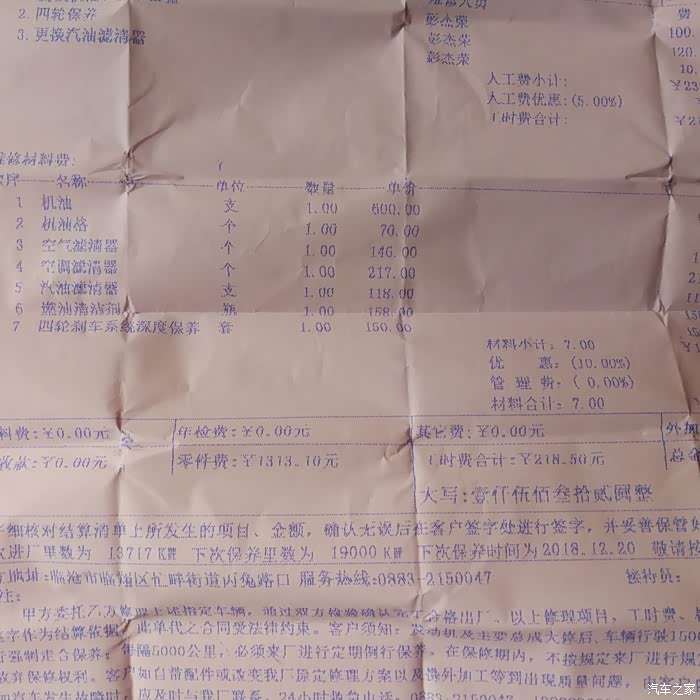 2. 四轮保养 彭杰荣 费
3. 更换汽油滤清器 彭杰荣 100.
彭杰荣 120.
人工费小计: 10.
人工费优惠:(5.00%) ¥23
工时费合计: ¥2
维修材料费:
次序 名称 单位 数量 单价
1 机油 支 1.00 600.00
2 机油格 个 1.00 70.00
3 空气滤清器 个 1.00 146.00
4 空调滤清器 个 1.00 217.00
5 汽油滤清器 支 1.00 118.00
6 燃油清洁剂 瓶 1.00 158.00
7 四轮刹车系统深度保养 套 1.00 150.00
材料小计: 7.00
优 惠: (10.00%)
管 理 费: ( 0.00%)
材料合计: 7.00
料费:¥0.00元 年检费:¥0.00元 其它费:¥0.00元 外加
收款:¥0.00元 零件费:¥1313.10元 工时费合计:¥218.50元 总金
大写:壹仟伍佰叁拾贰圆整
仔细核对结算清单上所发生的项目、金额，确认无误后在客户签字处进行签字，并妥善保管好
次进厂里数为 13717 KM 下次保养里数为 19000 KM 下次保养时间为 2018.12.20 敬请按
地址:临沧市临翔区忙畔街道内兔路口 服务热线:0883-2150047 接待员:
注:
甲方委托乙方修理上述指定车辆，通过双方检验确认完工合格出厂。以上修理项目，工时费、
签字作为结算依据，此单代之合同受法律约束。客户须知：发动机及主要总成大修后、车辆行驶150
行强制走合保养；每隔5000公里，必须来厂进行定期例行保养。在保修期内，不按规定来厂进行规
放弃保修权利。客户如自带配件或改变我厂原定修理方案以及外加工等到出现质量问题，由客
如汽车发生故障时，应及时与我厂联系，24小时救急电话：0883-2150047
汽车之家